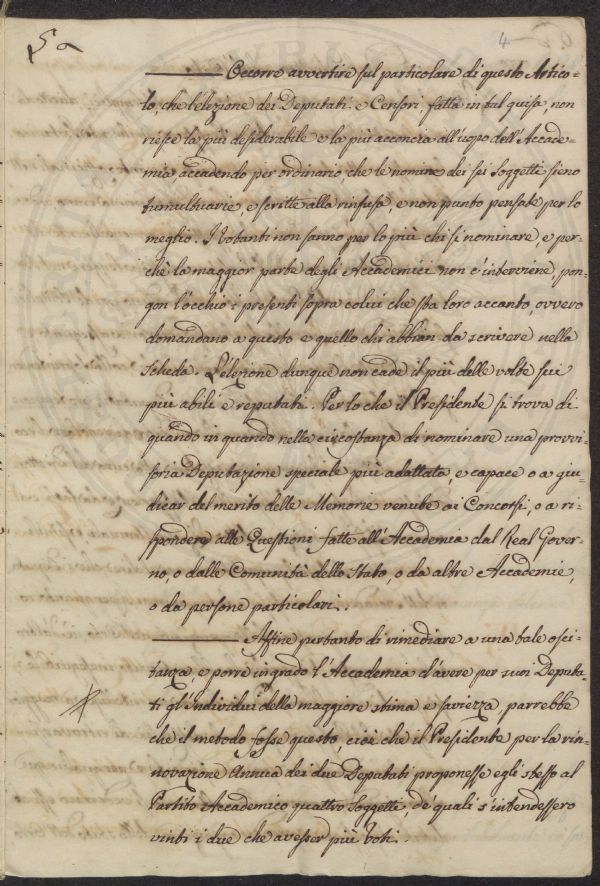 5a
4
Occorre avvertire sul particolare di questo Artico-
lo, che l'elezione dei Deputati e Censori, fatta in tal guisa, non
riesce la più desiderabile e la più acconcia all'uopo dell'Accade-
mia, accadendo per ordinario che le nomine dei sei Soggetti sieno
tumultuarie, e scritte alla rinfusa, e non punto pensate per lo
meglio. I Votanti non sanno per lo più chi si nominare, e per-
chè la maggior parte degli Accademici non c'interviene, pon-
gon l'occhio i presenti sopra colui che sta loro accanto, ovvero
domandano a questo e quello chi abbian da scrivere nella
Scheda. L'elezione dunque non cade il più delle volte sui
più abili e reputati. Per lo che il Presidente si trova di
quando in quando nella circostanza di nominare una provvi-
soria Deputazione speciale più adattata, e capace o a giu-
dicar del merito delle Memorie venute ai Concorsi, o a ri-
spondere alle Questioni fatte all'Accademia dal Real Gover-
no, o dalle Comunità dello Stato, o da altre Accademie,
o da persone particolari.
Affine pertanto di rimediare a una tale osci-
tanza, e porre in grado l'Accademia d'avere per suoi Deputa-
ti gl'Individui della maggiore stima e saviezza, parrebbe
che il metodo fosse questo, cioè che il Presidente per la rin-
novazione Annua dei due Deputati proponesse egli stesso al
Partito Accademico quattro Soggetti, de' quali s'intendessero
vinti i due che avesser più Voti.